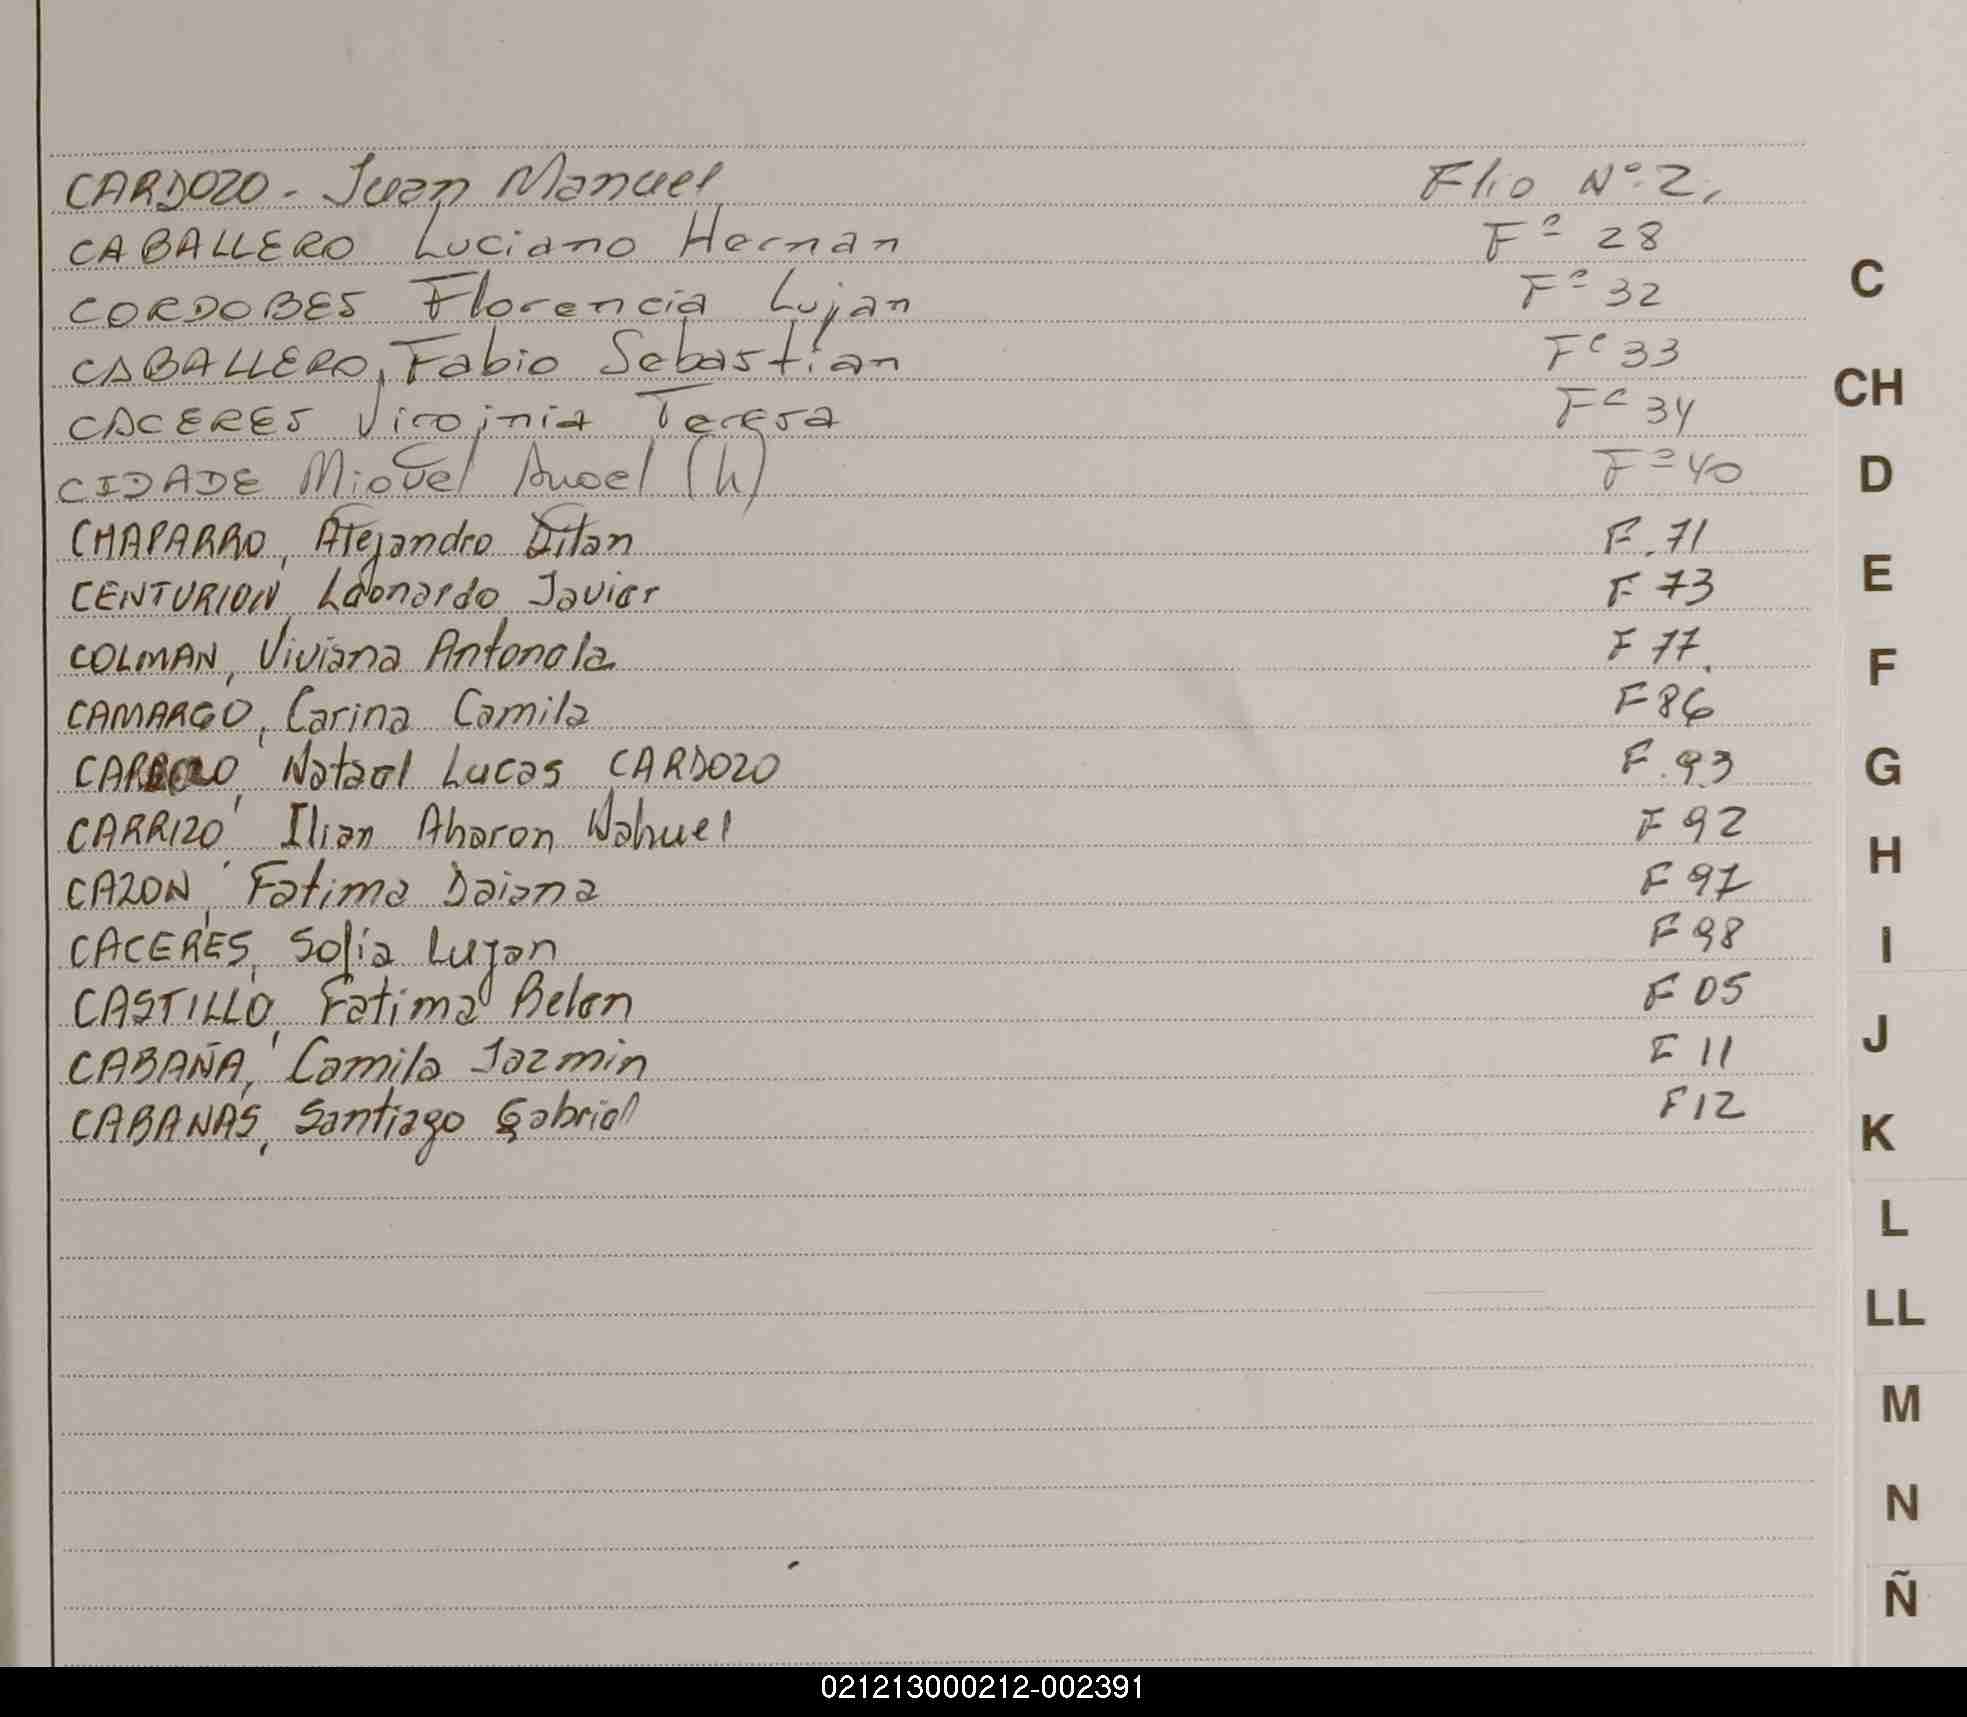 CARDOZO - Juan Manuel Flio Nº 2,
CABALLERO Luciano Hernan Fº 28
CORDOBES Florencia Lujan Fº 32
CABALLERO, Fabio Sebastian Fº 33
CACERES Virginia Teresa Fº 34
CIDADE Miguel Angel (h) Fº 40
CHAPARRO, Alejandro F. 71
CENTURION Leonardo Javier F 73
COLMAN, Viviana Antonela F 77.
CAMARGO, Carina Camila F 86
Natael Lucas CARDOZO F. 93
CARRIZO Ilian Aharon Nahuel F 92
CAZON, Fatima Daiana F 97
CACERES, Sofia Lujan F 98
CASTILLO, Fatima Belen F 05
CABAÑA, Camila Jazmin F 11
CABANAS, Santiago Gabriel F 12
C
CH
D
E
F
G
H
I
J
K
L
LL
M
N
Ñ
021213000212-002391